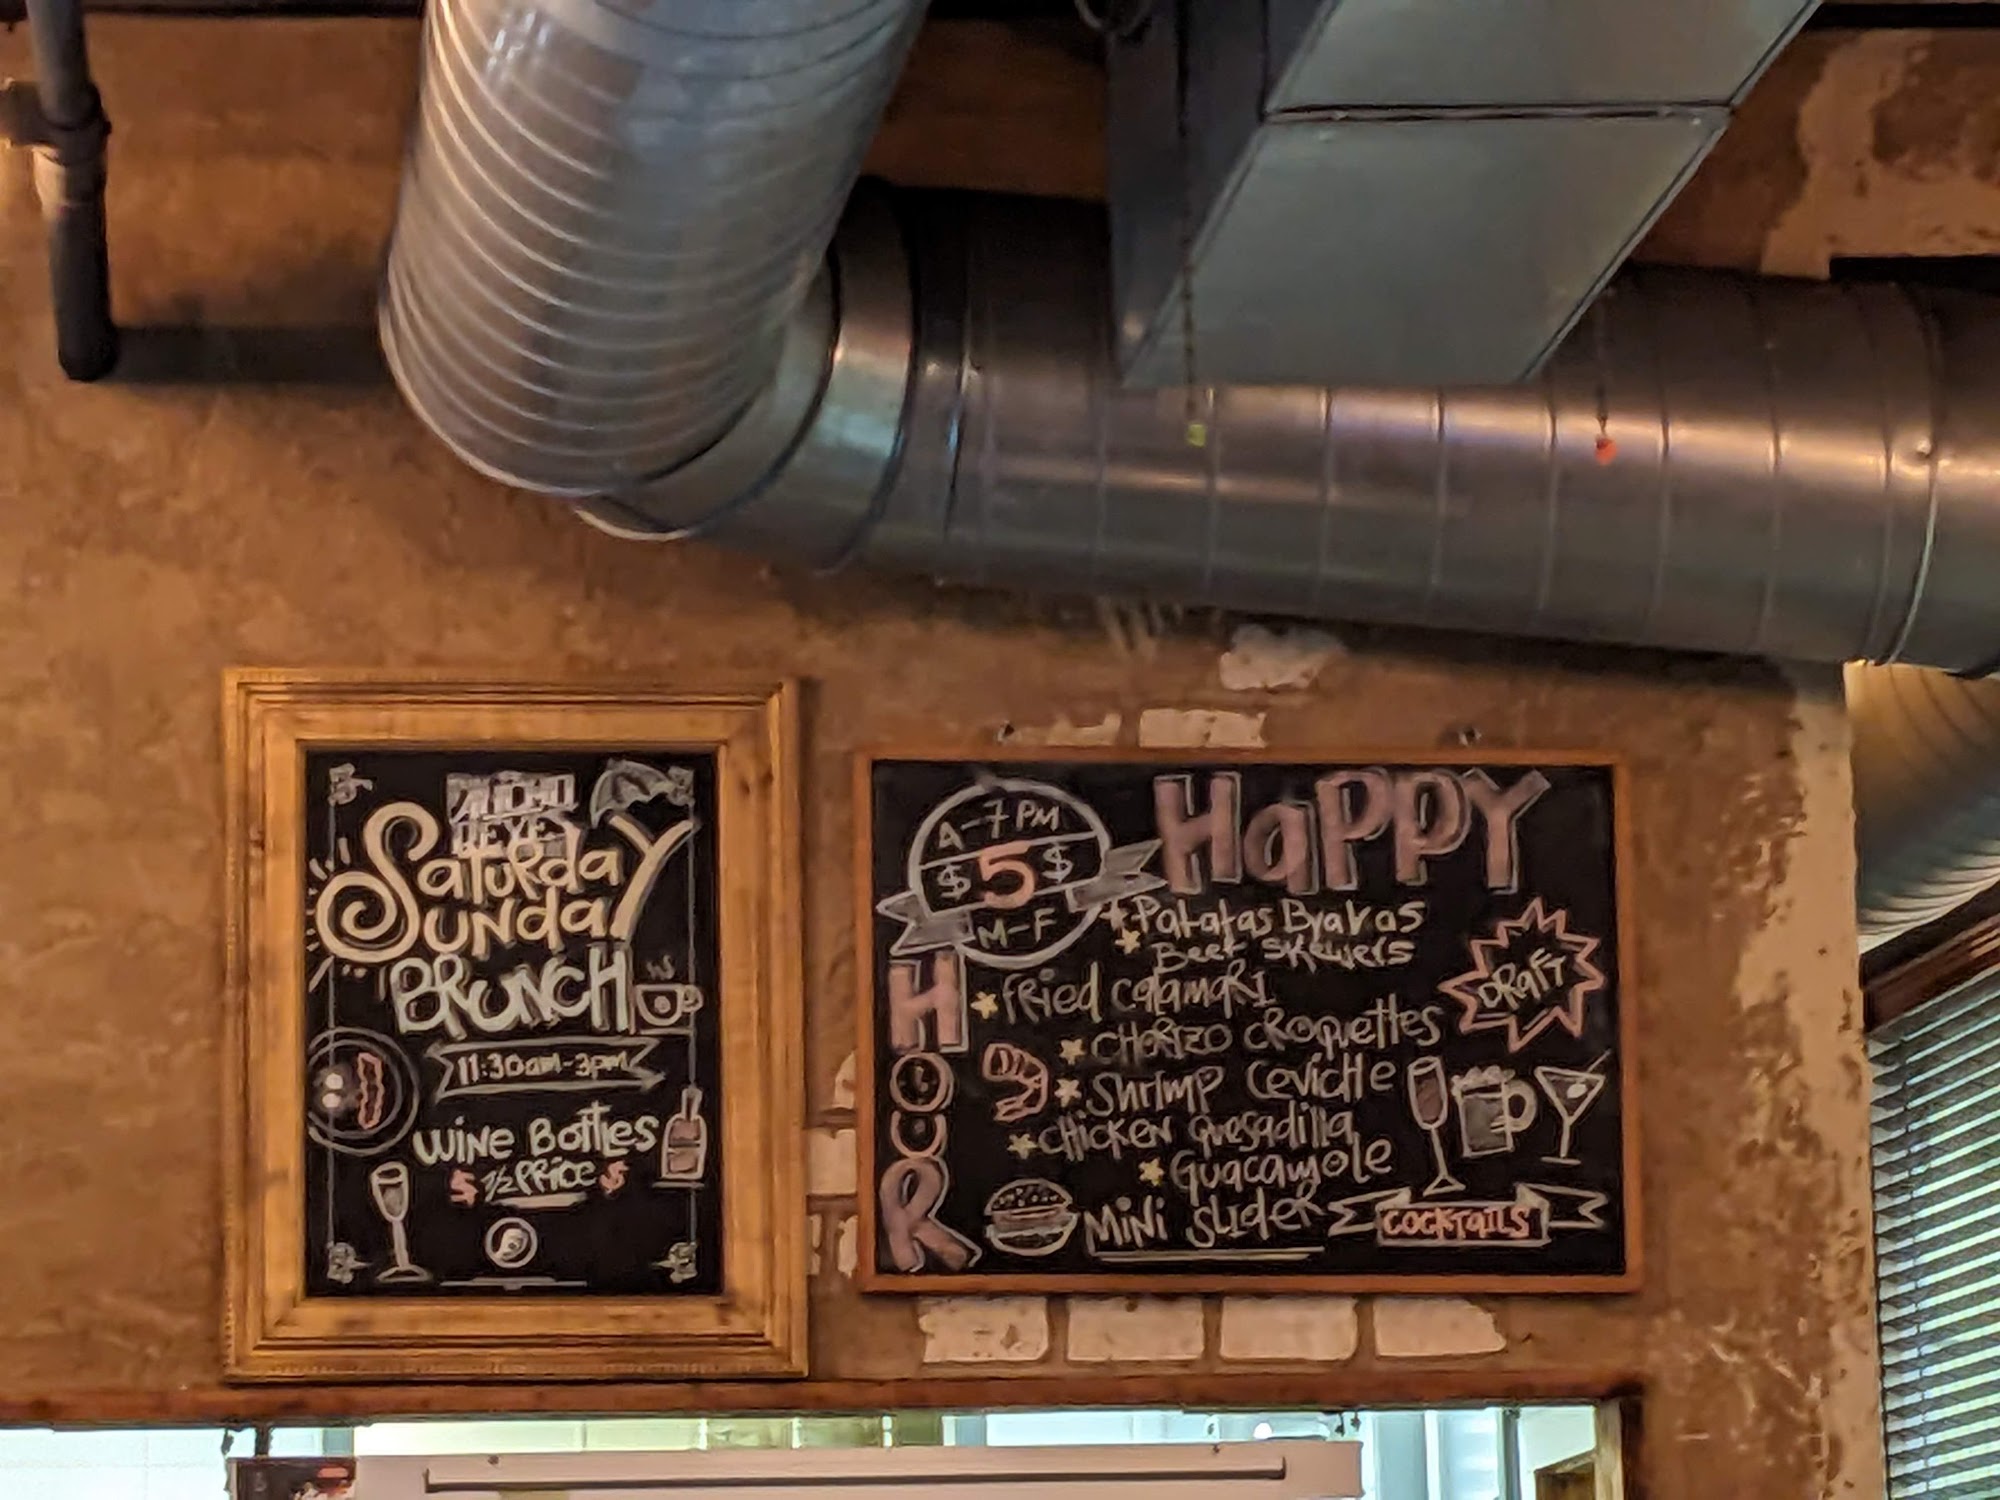 PANCHO
REYES
SaTURDaY
SUNDaY
BRUNCH
11:30am-3pm
WINE BOTTLES
$ 1/2 PRICE $
4-7 PM
$ 5 $
M-F
HaPPY
HOUR
Patatas Bravas
Beef SKewers
fried calamaRI
CHORIZO CROQUETTES
SHRIMP CEVICHE
CHICKEN quesadilla
GUACAMOLE
MINI SLIDER
DRAFT
COCKTAILS